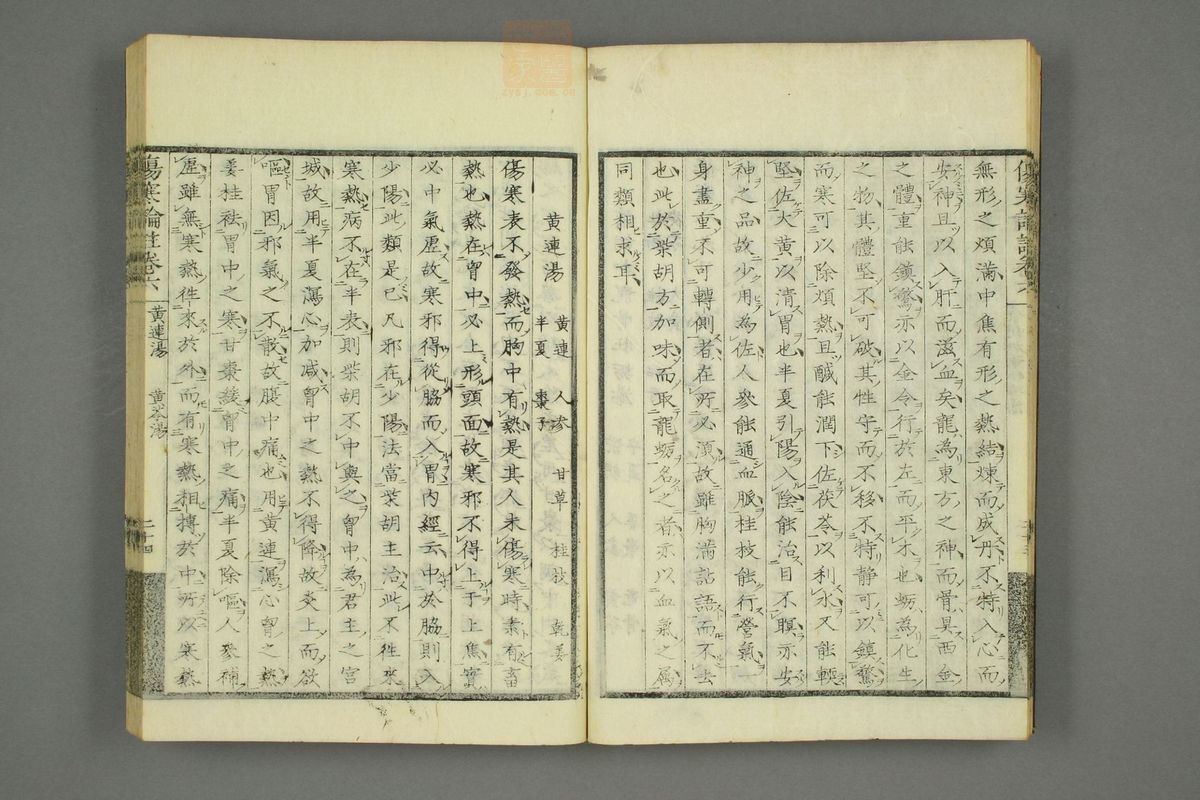 無形之煩滿中焦有形之熱結煉而成丹不特入心而
安神且以入肝而滋血矣龍為東方之神而骨具西金
之體重能鎮驚亦以金令行於左而平木也蠣為化生
之物其體堅不可破其性守而不移不特靜可以鎮驚
而寒可以除煩熱且鹹能潤下佐茯苓以利水又能軟
堅佐大黃以清胃也半夏引陽入陰能治目不瞑亦安
神之品故少用為佐人參能通血脈桂枝能行營氣一
身盡重不可轉側者在所必須故雖胸滿詀語而不去
也此於柴胡方加味而取龍蠣名之者亦以血氣之屬
同類相求耳
黃連湯 黃連 人參 甘草 桂枝 乾姜
半夏 棗子
傷寒表不發熱而胸中有熱是其人未傷寒時素有畜
熱也熱在胷中必上形頭面故寒邪不得上干上焦實
必中氣虛故寒邪得從脇而入胃內經云中於脇則入
少陽此類是已凡邪在少陽法當柴胡主治此不徃來
寒熱病不在半表則柴胡不中與之胷中為君主之宮
城故用半夏瀉心加減胷中之熱不得降故炎上而欲
嘔胃因邪氣之不散故腹中痛也用黃連瀉心胷之熱
姜桂袪胃中之寒甘棗緩胷中之痛半夏除嘔人參補
虛雖無寒熱徃來於外而有寒熱相摶於中所以寒熱
傷寒論註卷六 黃連湯 黃芩湯 二十四